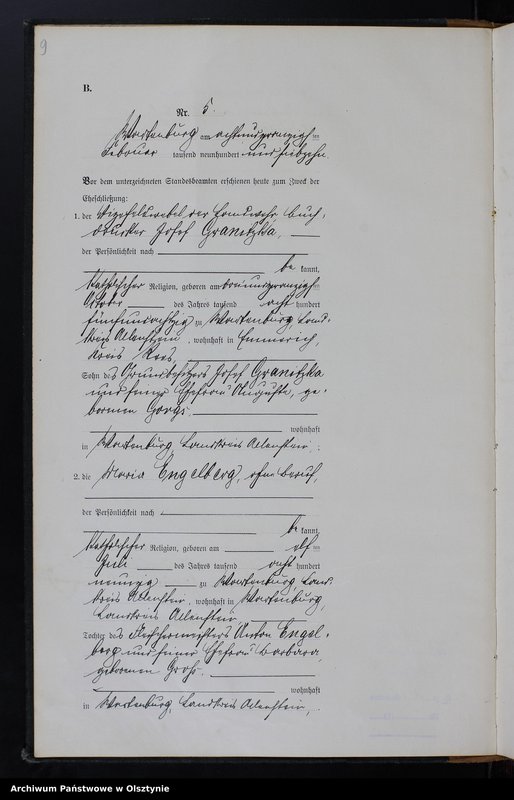 9
B.
Nr. 5.
Wartenburg am achtundzwanzigsten
Februar tausend neunhundert und siebzehn.
Vor dem unterzeichneten Standesbeamten erschienen heute zum Zweck der
Eheschließung:
1. der Vizefeldwebel der Landwehr, Buch-
drucker Josef Granitzka,
der Persönlichkeit nach
be kannt,
katholischer Religion, geboren am dreiundzwanzigsten
Oktober des Jahres tausend acht hundert
fünfundachtzig zu Wartenburg, Land-
kreis Allenstein, wohnhaft in Emmerich,
Kreis Rees,
Sohn des Grundbesitzers Josef Granitzka
und seiner Ehefrau Auguste, ge-
borenen Gorgs.
wohnhaft
in Wartenburg, Landkreis Allenstein;
2. die Maria Engelberg, ohne Beruf,
der Persönlichkeit nach
be kannt,
katholischer Religion, geboren am elften
Juli des Jahres tausend acht hundert
neunzig zu Wartenburg, Land-
kreis Allenstein, wohnhaft in Wartenburg,
Landkreis Allenstein,
Tochter des Fleischermeisters Anton Engel-
berg und seiner Ehefrau Barbara,
geborenen Groß,
wohnhaft
in Wartenburg, Landkreis Allenstein,
Archiwum Państwowe w Olsztynie